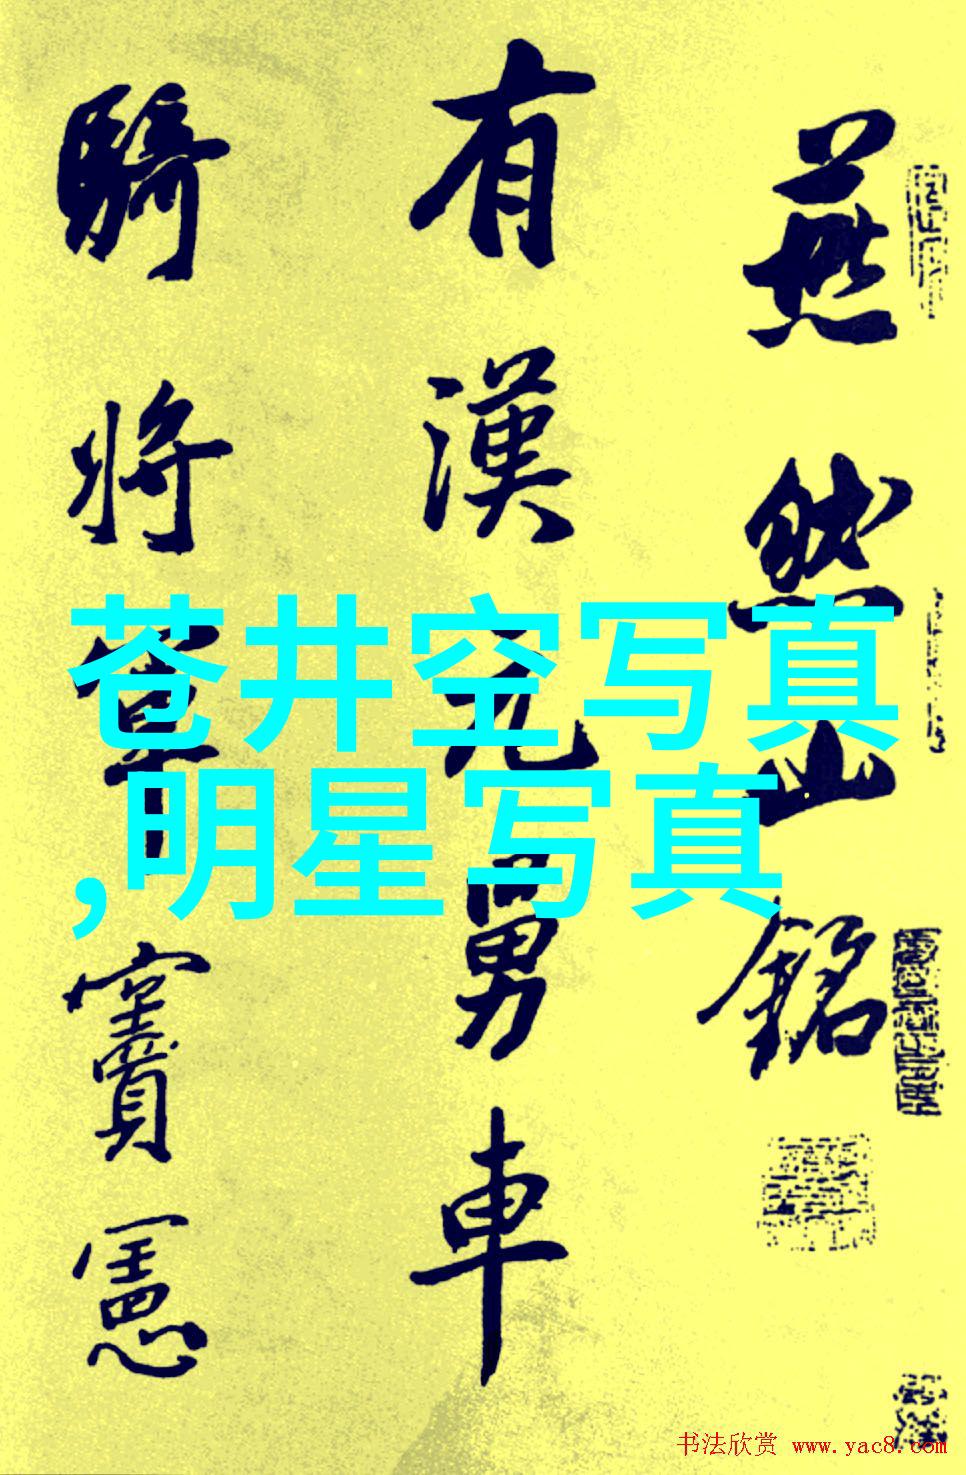 燕然山銘
有漢元舅車
騎將軍竇憲
苍井空写真
,明星写真
书法欣赏 www.yac8.com